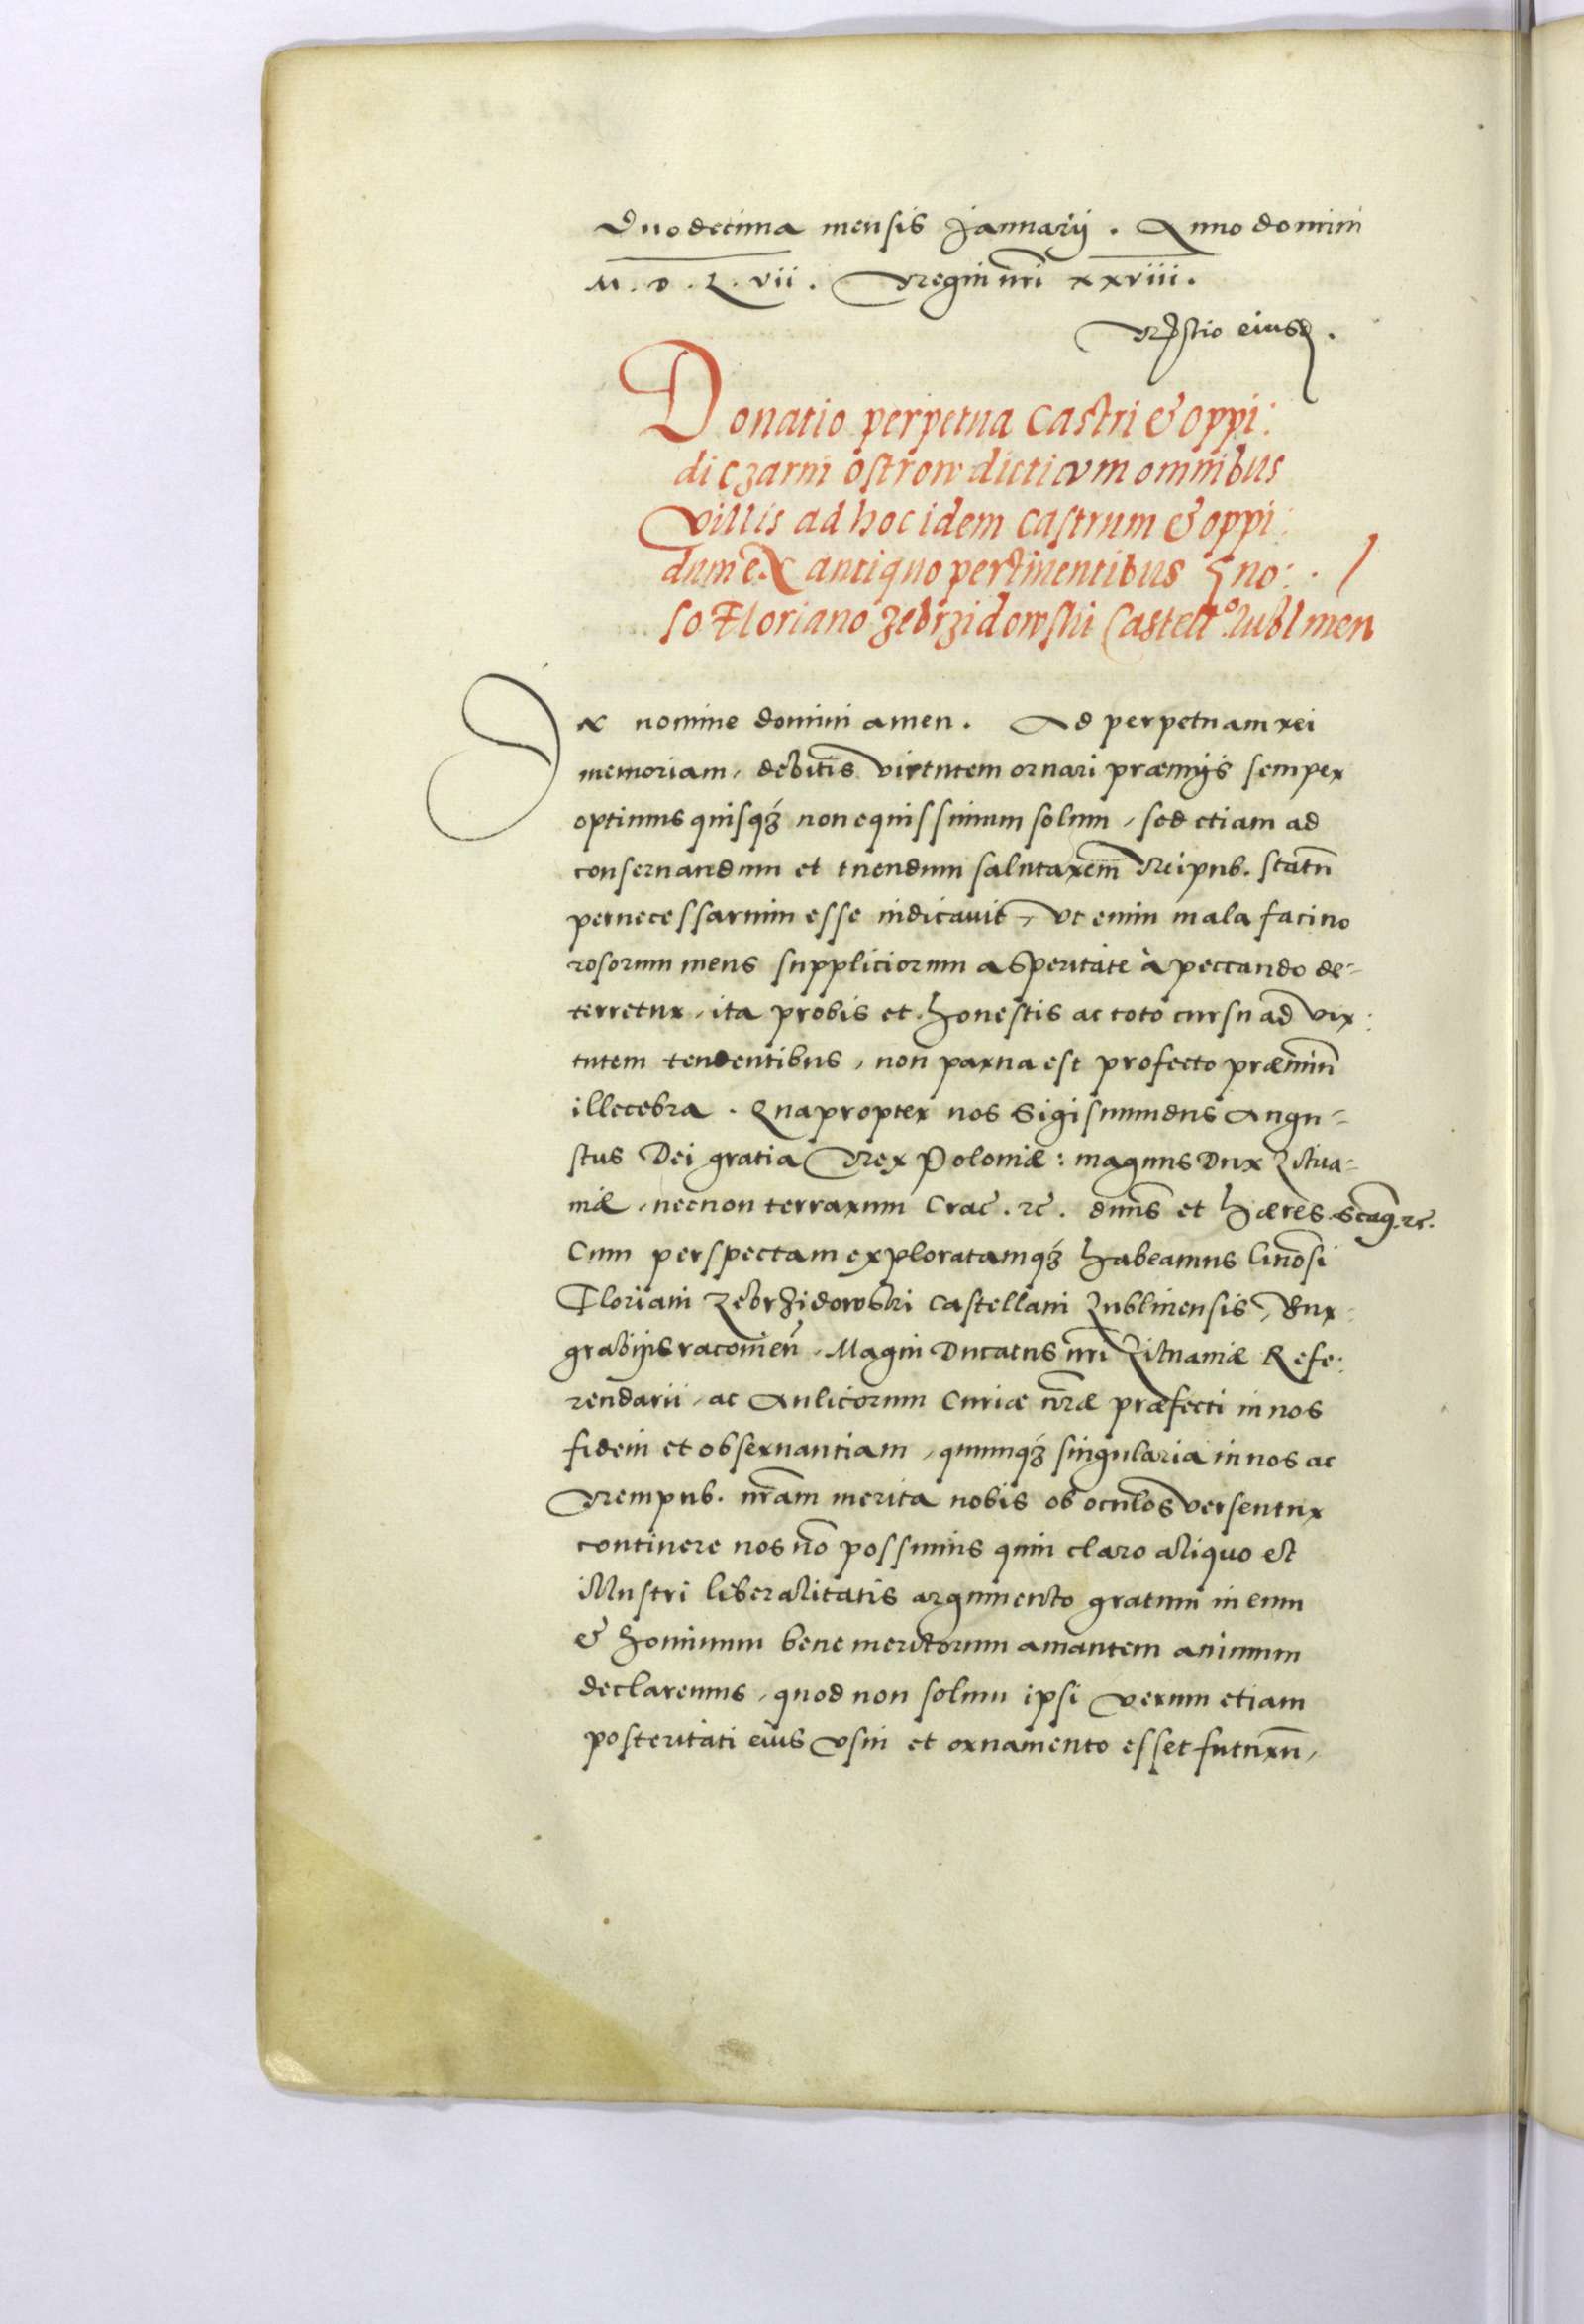 Duodecima mensis Januarij . Anno domini
M . D . L . vii . Regni nri xxviii .
Rstio eiusd .
Donatio perpetua castri & oppi:
di czarni ostrow dicti cum omnibus
villis ad hoc idem castrum & oppi:
dum ex antiquo pertinentibus gno: .
so Floriano zebrzidowski Castello. lublinen
In nomine domini amen . Ad perpetuam rei
memoriam, debitis virtutem ornari præmijs semper
optimus quisq3 non equissimum solum, sed etiam ad
conseruandum et tuendum salutarem Reipub. statū
pernecessarium esse iudicauit, vt enim mala facino
rosorum mens suppliciorum asperitate à peccando de=
terretur, ita probis et honestis ac toto cursu ad vir:
tutem tendentibus, non parua est profecto præmiū
illecebra . Quapropter nos Sigismundus Augu=
stus Dei gratia Rex Poloniæ : magnus Dux Litua=
niæ, necnon terrarum Crac . &c . dnus et hæres . &cæq. &c.
Cum perspectam exploratamq3 habeamus Gnosi
Floriani Zebrzidowski Castellani Lublinensis, Bur
grabijs racouien, Magni Ducatus nri Lituaniæ Refe:
rendarii, ac Aulicorum Curiæ nræ præfecti in nos
fidem et obseruantiam, quumq3 singularia in nos ac
Rempub. nram merita nobis ob oculos versentur
continere nos nō possumus quin claro aliquo et
illustri liberalitatis argumento gratum in eum
& hominum bene meritorum amantem animum
declaremus, quod non solum ipsi verum etiam
posteritati eius vsui et ornamento esset futurū,